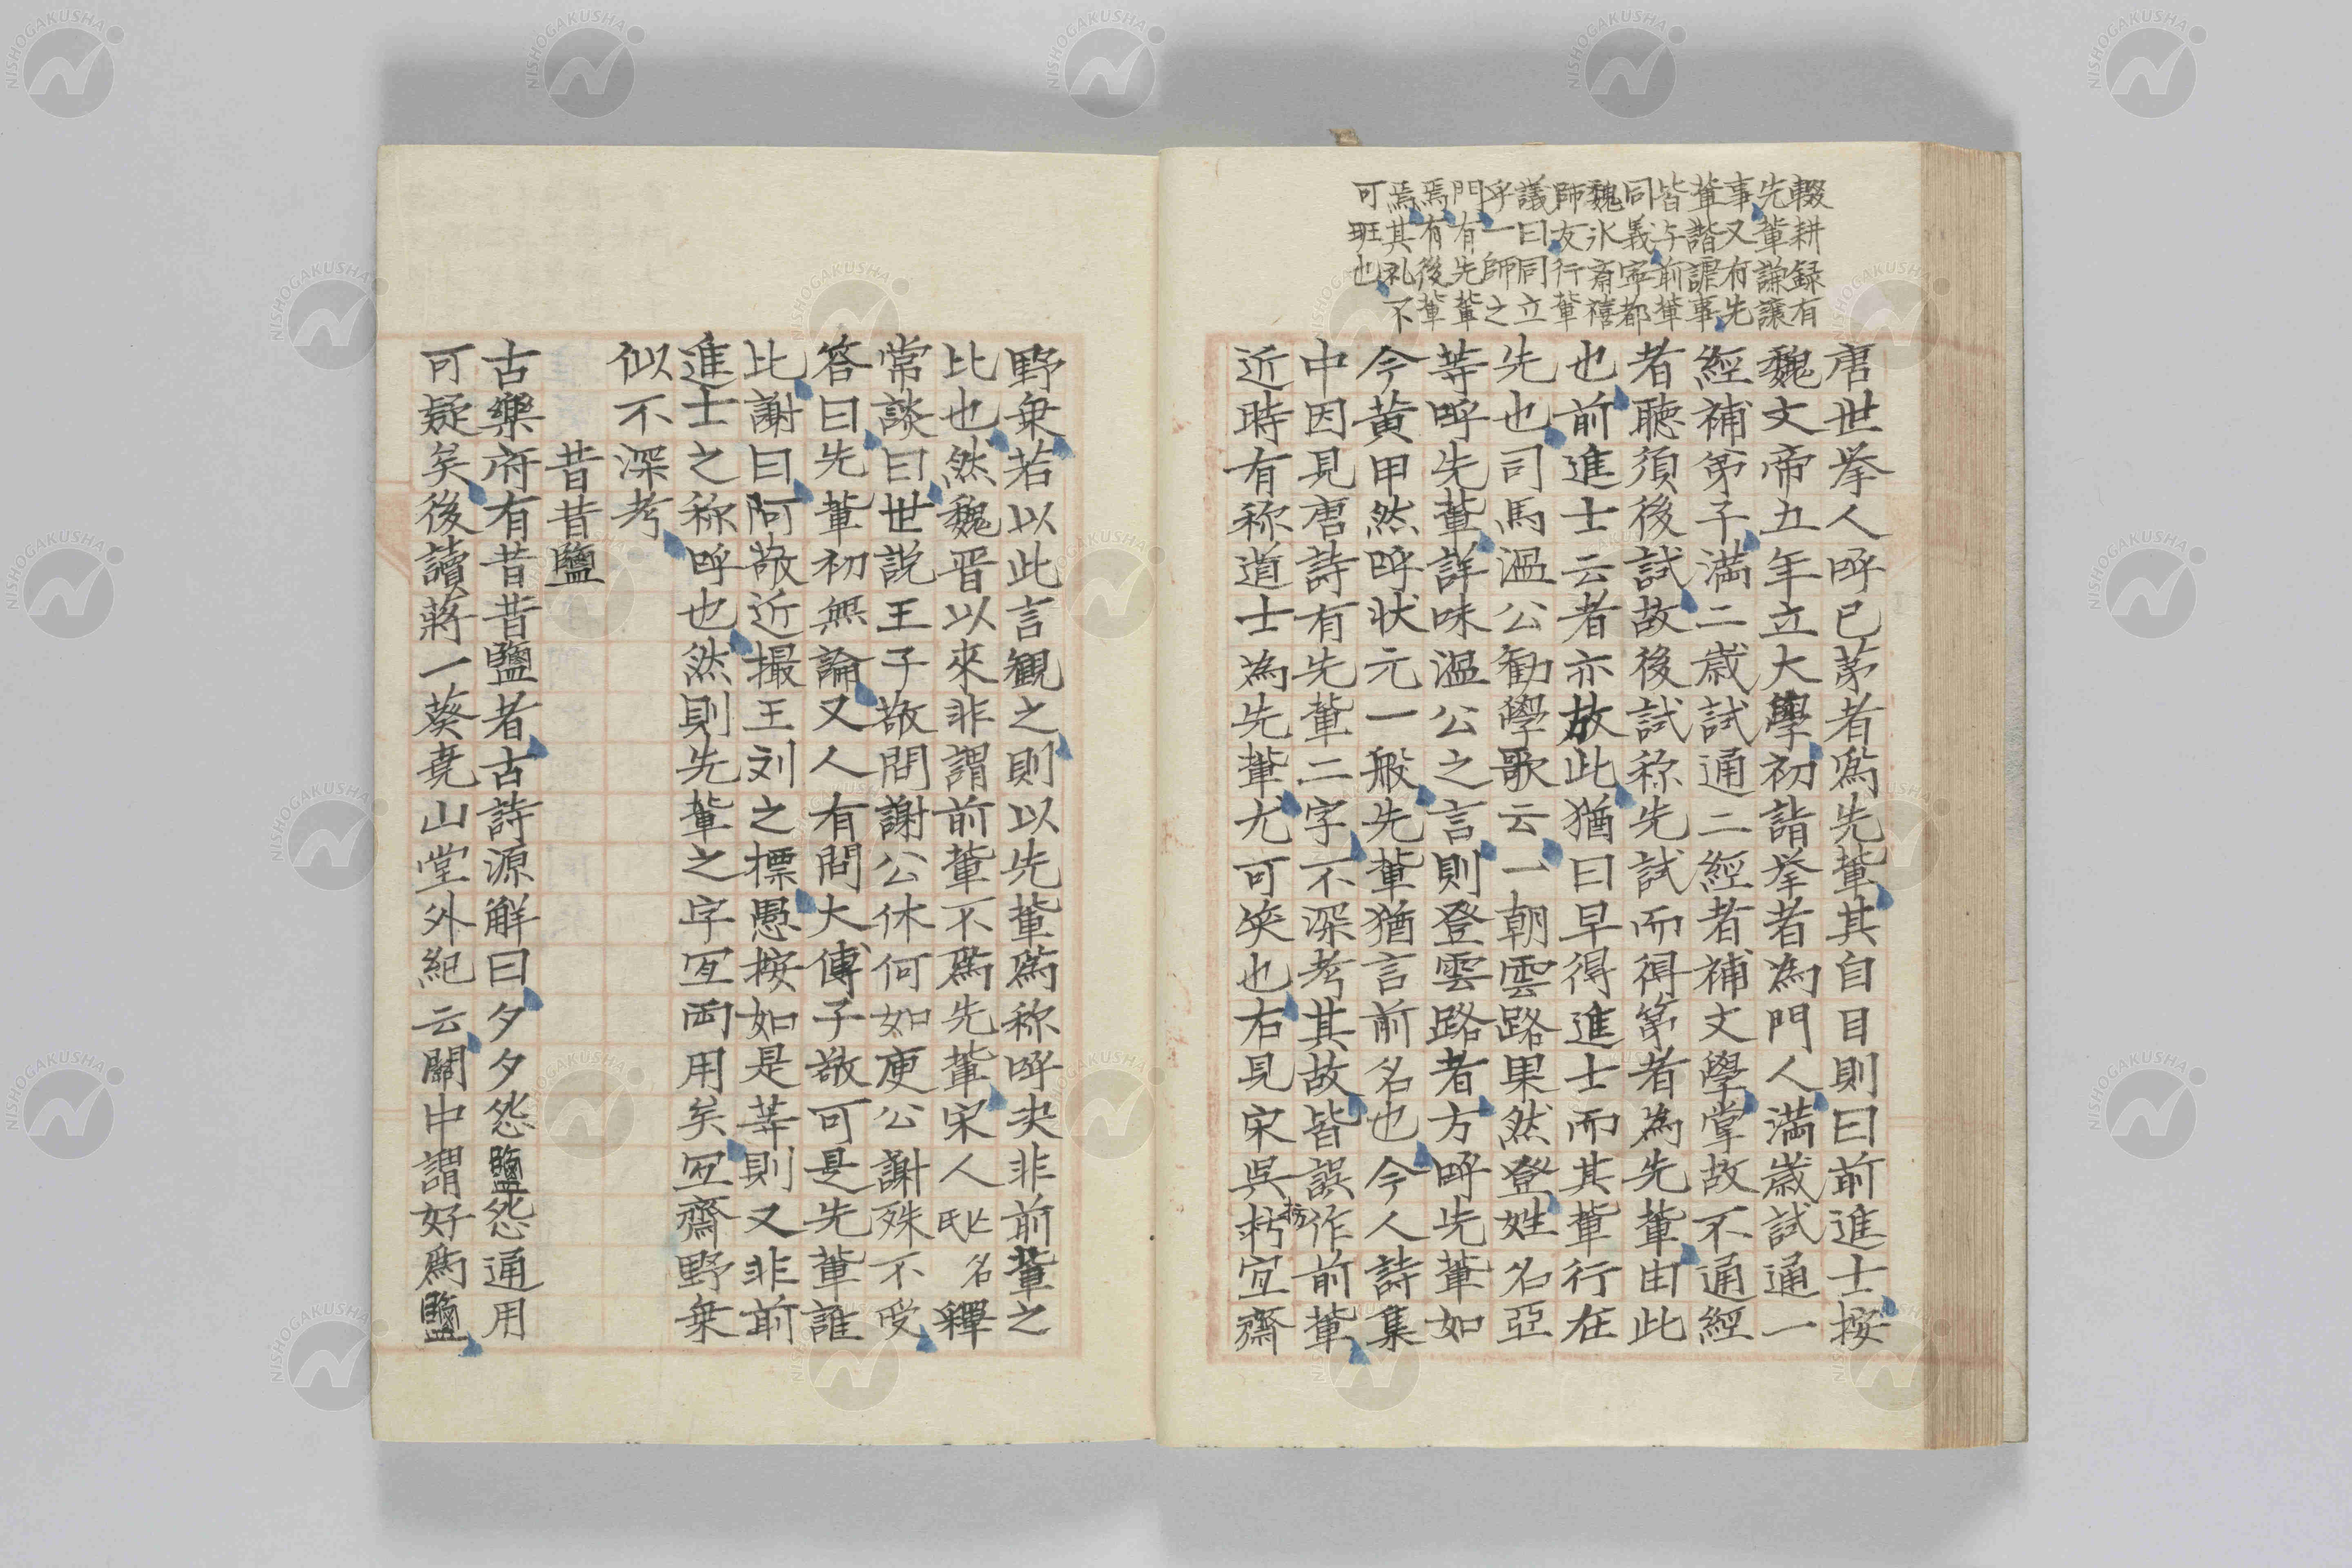 輟耕録有
先輩謙譲
事又有先
輩諧謔事
皆与前輩
同義寧都
魏氷斎禧
師友行輩
議曰同立
乎一師之
門有先輩
焉有後輩
焉其礼不
可班也
唐世挙人呼已苐者為先輩其自目則曰前進士按
魏文帝五年立大學初詣挙者為門人満歳試通一
經補弟子満二歳試通二經者補文學掌故不通經
者聴須後試故後試称先試而得第者為先輩由此
也前進士云者亦放此猶曰早得進士而其輩行在
先也司馬温公勧學歌云一朝雲路果然登姓名亞
等呼先輩詳味温公之言則登雲路者方呼先輩如
今黄甲然呼状元一般先輩猶言前名也今人詩集
中因見唐詩有先輩二字不深考其故皆誤作前輩
近時有称道士為先輩尤可笑也右見宋呉枋宜齋
野乗若以此言観之則以先輩為称呼夫非前輩之
比也然魏晋以來非謂前輩不為先輩宋人氏名釋
常談曰世説王子敬問謝公休何如庾公謝殊不受
答曰先輩初無論又人有問大傅子敬可是先輩誰
比謝曰阿敬近撮王刘之標愚按如是等則又非前
進士之称呼也然則先輩之字宜両用矣宜齋野乗
似不深考
昔昔鹽
古樂府有昔昔鹽者古詩源解曰夕夕怨鹽怨通用
可疑矣後讀蒋一葵尭山堂外紀云關中謂好為鹽
NISHOGAKUSHA